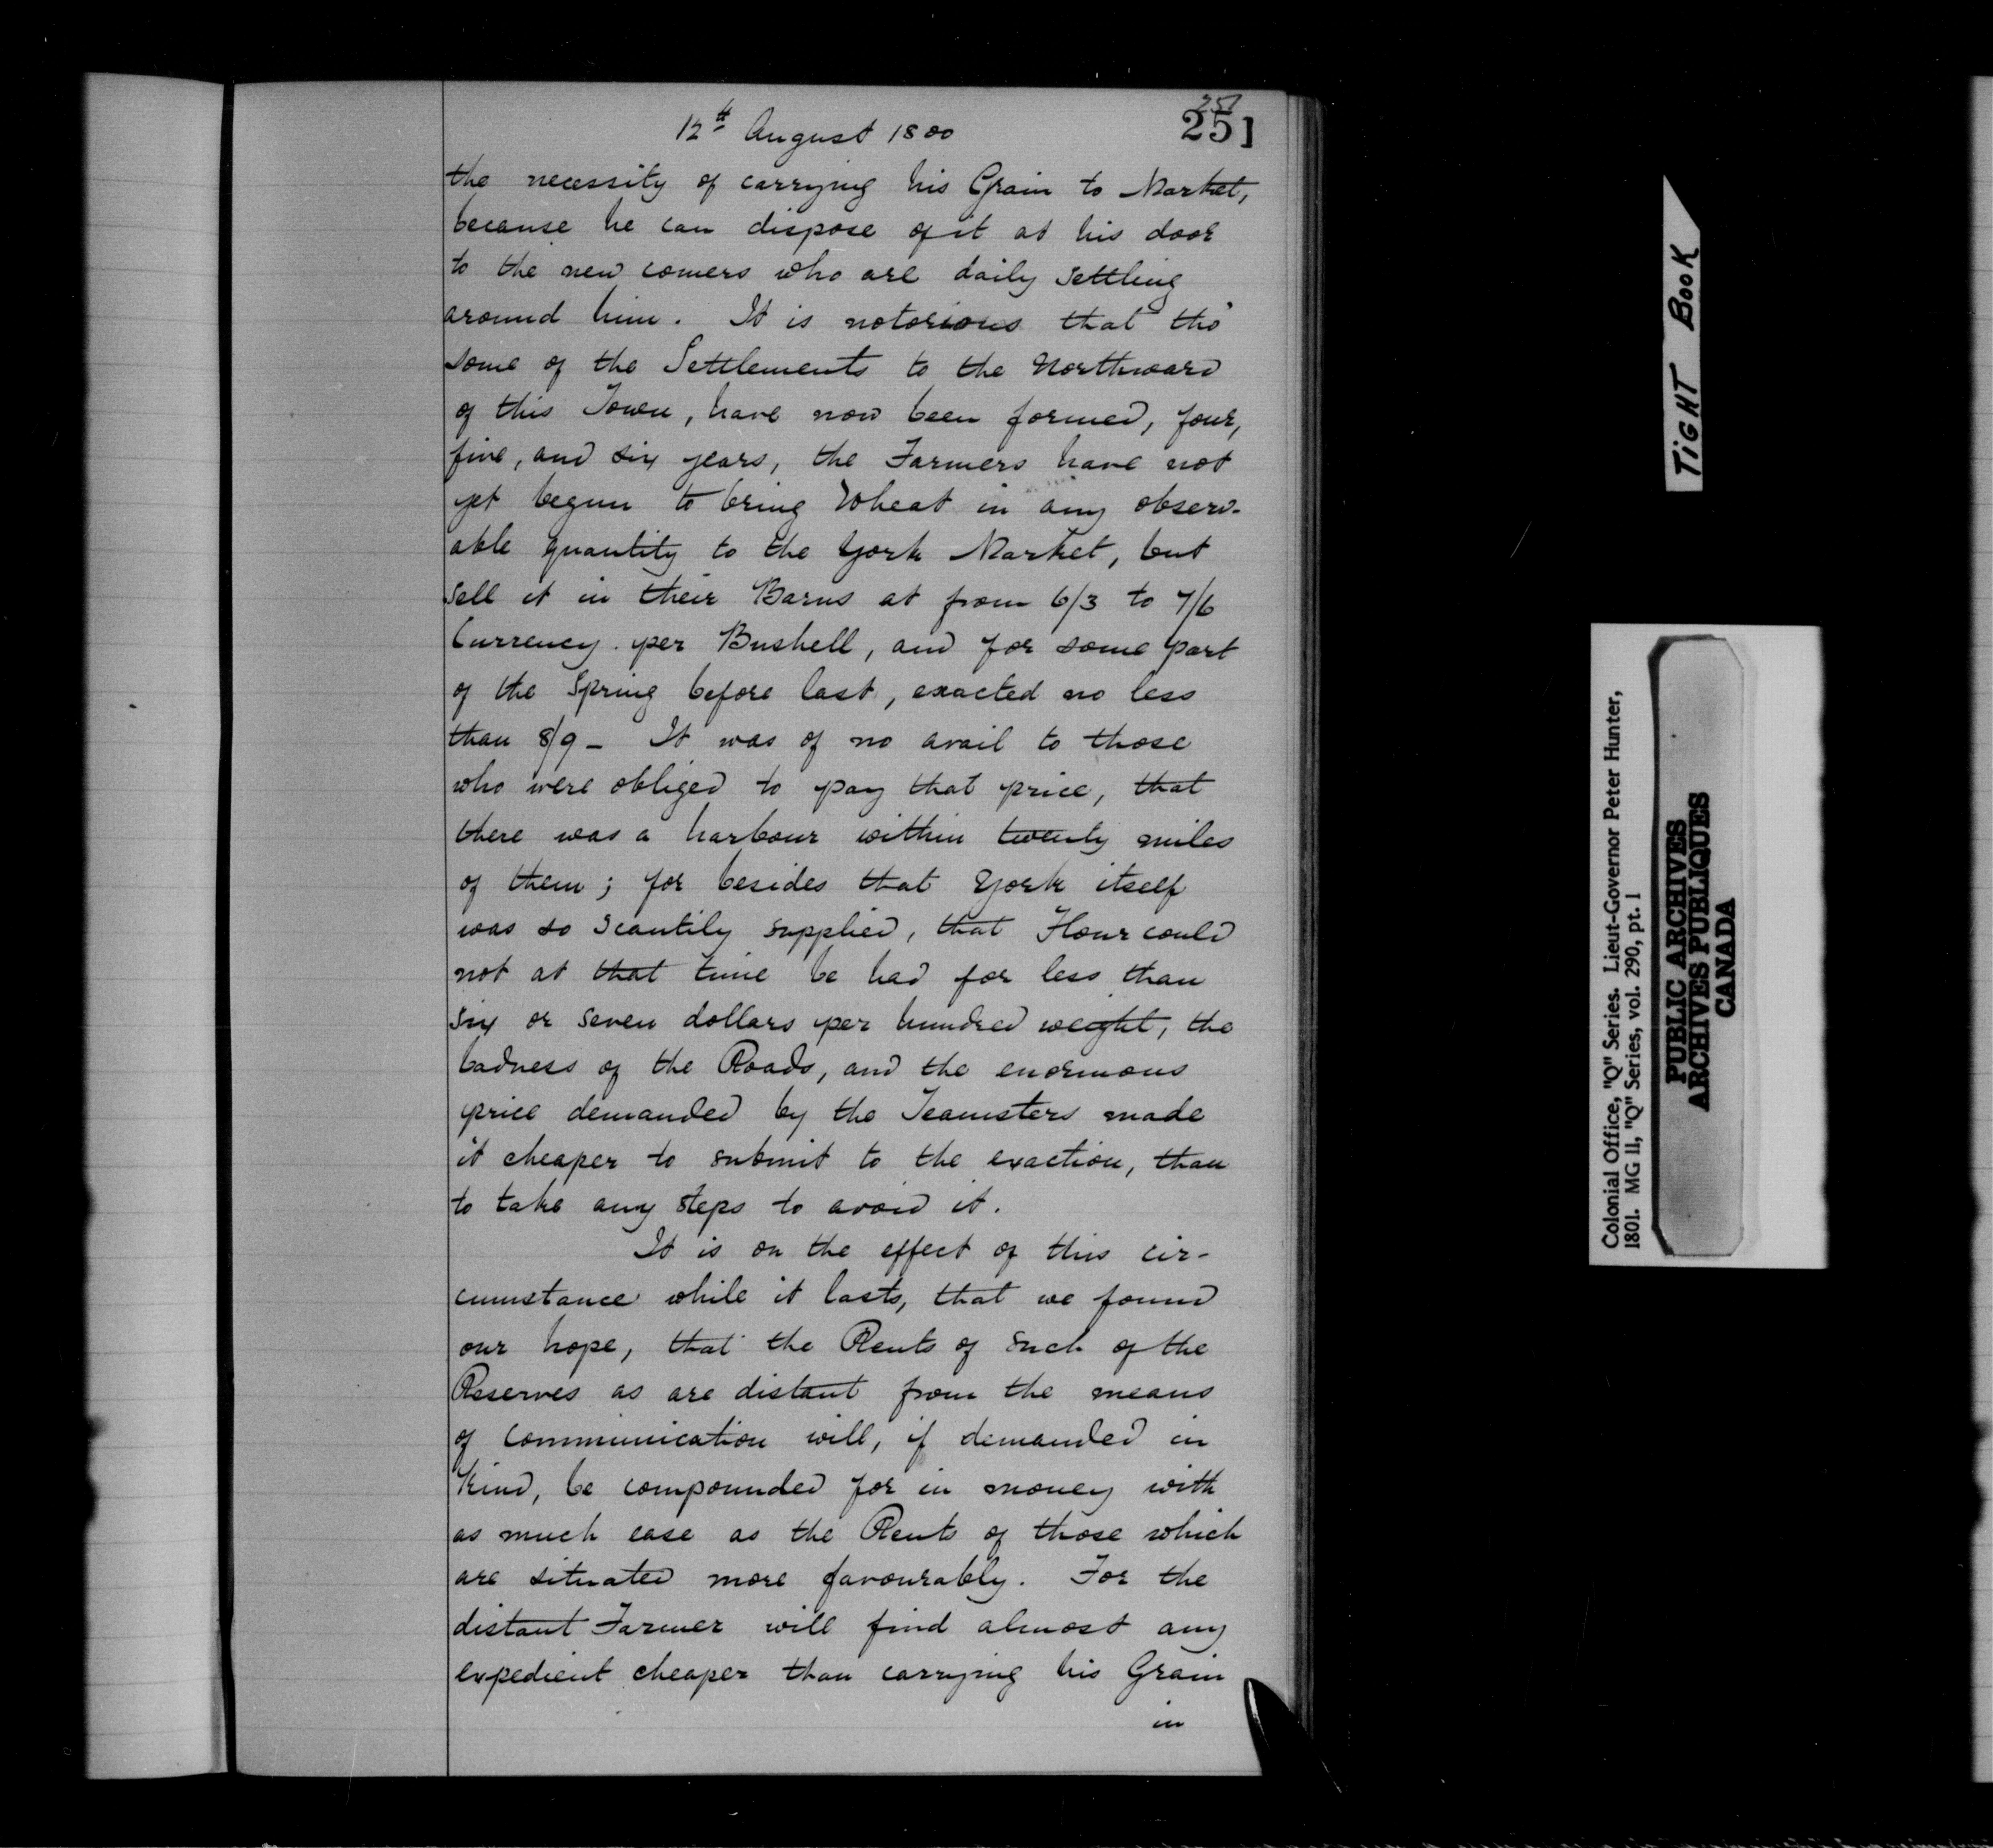 12th August 1800
251
251
the necessity of carrying his Grain to Market,
because he can dispose of it at his door
to the new comers who are daily settling
around him. It is notorious that tho'
some of the Settlements to the Northward
of this Town, have now been formed, four,
five, and six years, the Farmers have not
yet begun to bring Wheat in any observ-
able quantity to the York Market, but
sell it in their Barns at from 6/3 to 7/6
Currency per Bushell, and for some part
of the Spring before last, exacted no less
than 8/9 - It was of no avail to those
who were obliged to pay that price, that
there was a harbour within twenty miles
of them; for besides that York itself
was so scantily supplied, that Flour could
not at that time be had for less than
six or seven dollars per hundred weight, the
badness of the Roads, and the enormous
price demanded by the Teamsters made
it cheaper to submit to the exaction, than
to take any steps to avoid it.
It is on the effect of this cir-
cumstance while it lasts, that we found
our hope, that the Rents of such of the
Reserves as are distant from the means
of communication will, if demanded in
Kind, be compounded for in money with
as much ease as the Rents of those which
are situated more favourably. For the
distant Farmer will find almost any
expedient cheaper than carrying his Grain
in
TIGHT BOOK
Colonial Office, "Q" Series. Lieut-Governor Peter Hunter,
1801. MG 11, "Q" Series, vol. 290, pt. 1
PUBLIC ARCHIVES
ARCHIVES PUBLIQUES
CANADA